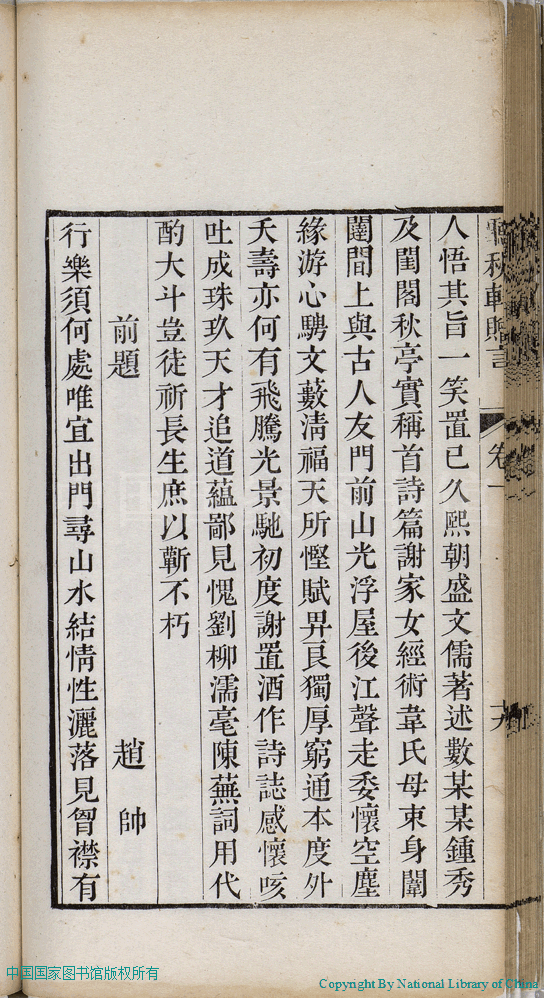 聽秋軒贈言
卷一
人悟其旨一笑置已久熙朝盛文儒著述數某某鍾秀
及閨閣秋亭實稱首詩篇謝家女經術韋氏母束身闈
闥間上與古人友門前山光浮屋後江聲走委懷空塵
緣游心騁文藪淸福天所慳賦畀良獨厚窮通本度外
夭壽亦何有飛騰光景馳初度謝置酒作詩誌感懷咳
吐成珠玖天才追道蘊鄙見愧劉柳濡毫陳蕪詞用代
酌大斗豈徒祈長生庶以蘄不朽
前題
趙帥
行樂須何處唯宜出門尋山水結情性灑落見胷襟有
中国国家图书馆版权所有
Copyright By National Library of China